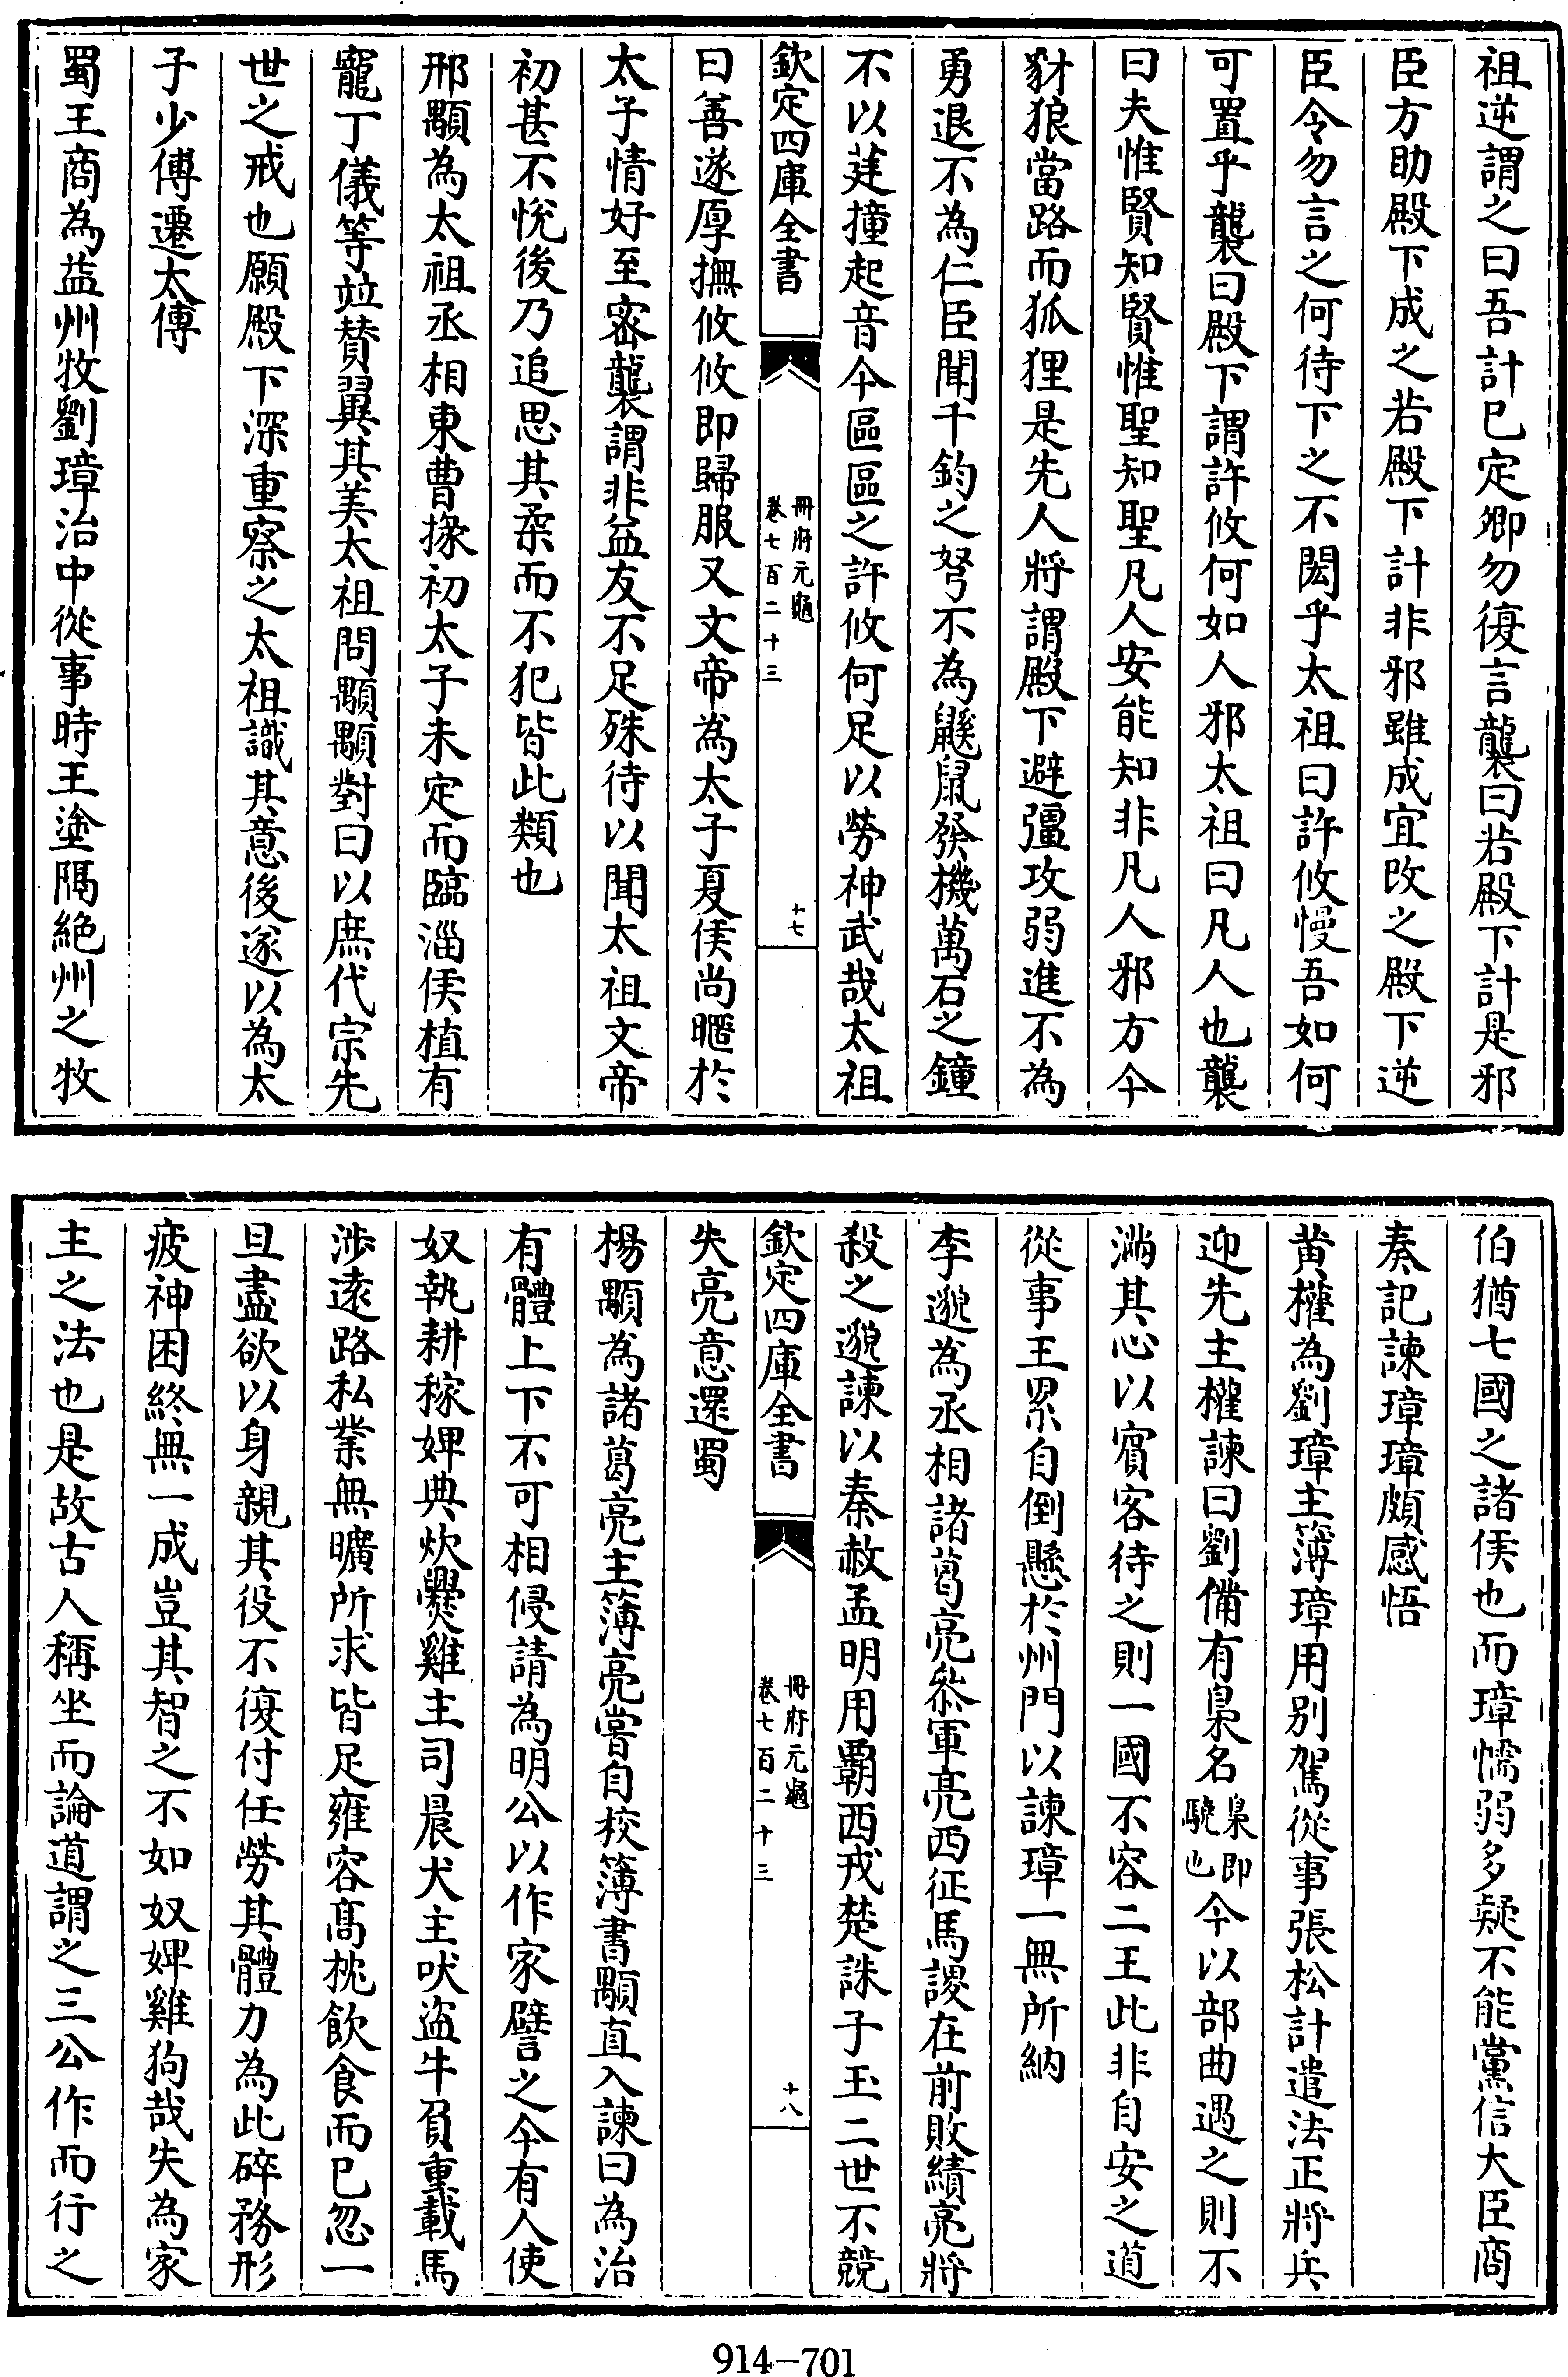 祖逆謂之曰吾計已定卿勿復言襲曰若殿下計是邪
臣方助殿下成之若殿下計非邪雖成宜改之殿下逆
臣令勿言之何待下之不閎乎太祖曰許攸慢吾如何
可置乎襲曰殿下謂許攸何如人邪太祖曰凡人也襲
曰夫惟賢知賢惟聖知聖凡人安能知非凡人邪方今
豺狼當路而狐狸是先人將謂殿下避彊攻弱進不為
勇退不為仁臣聞千鈞之弩不為鼷鼠發機萬石之鐘
不以莛撞起音今區區之許攸何足以勞神武哉太祖
欽定四庫全書
冊府元龜
卷七百二十三
十七
曰善遂厚撫攸攸即歸服又文帝為太子夏侯尚暱於
太子情好至密襲謂非益友不足殊待以聞太祖文帝
初甚不悅後乃追思其柔而不犯皆此類也
邢顒為太祖丞相東曹掾初太子未定而臨淄侯植有
寵丁儀等竝賛翼其美太祖問顒顒對曰以庶代宗先
世之戒也願殿下深重察之太祖識其意後遂以為太
子少傅遷太傅
蜀王商為益州牧劉璋治中從事時王塗隔絶州之牧
伯猶七國之諸侯也而璋懦弱多疑不能黨信大臣商
奏記諫璋璋頗感悟
黄權為劉璋主簿璋用别駕從事張松計遣法正將兵
迎先主權諫曰劉備有梟名梟即驍也今以部曲遇之則不
滿其心以賓客待之則一國不容二王此非自安之道
從事王累自倒懸於州門以諫璋一無所納
李邈為丞相諸葛亮叅軍亮西征馬謖在前敗績亮將
殺之邈諫以秦赦孟明用覇西戎楚誅子玉二世不競
欽定四庫全書
冊府元龜
卷七百二十三
十八
失亮意還蜀
楊顒為諸葛亮主簿亮嘗自校簿書顒直入諫曰為治
有體上下不可相侵請為明公以作家譬之今有人使
奴執耕稼婢典炊爨雞主司晨犬主吠盗牛負重載馬
涉遠路私業無曠所求皆足雍容高枕飲食而已忽一
旦盡欲以身親其役不復付任勞其體力為此碎務形
疲神困終無一成豈其智之不如奴婢雞狗哉失為家
主之法也是故古人稱坐而論道謂之三公作而行之
914-701